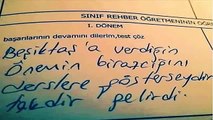 SINIF REHBER ÖĞRETMENİNİN
I. DÖNEM
başarılarının devamını dilerim,test çöz
Beşiktaş'a verdiğin
Önemin birazcığını
derslere gösterseydin
takdir gelirdi.